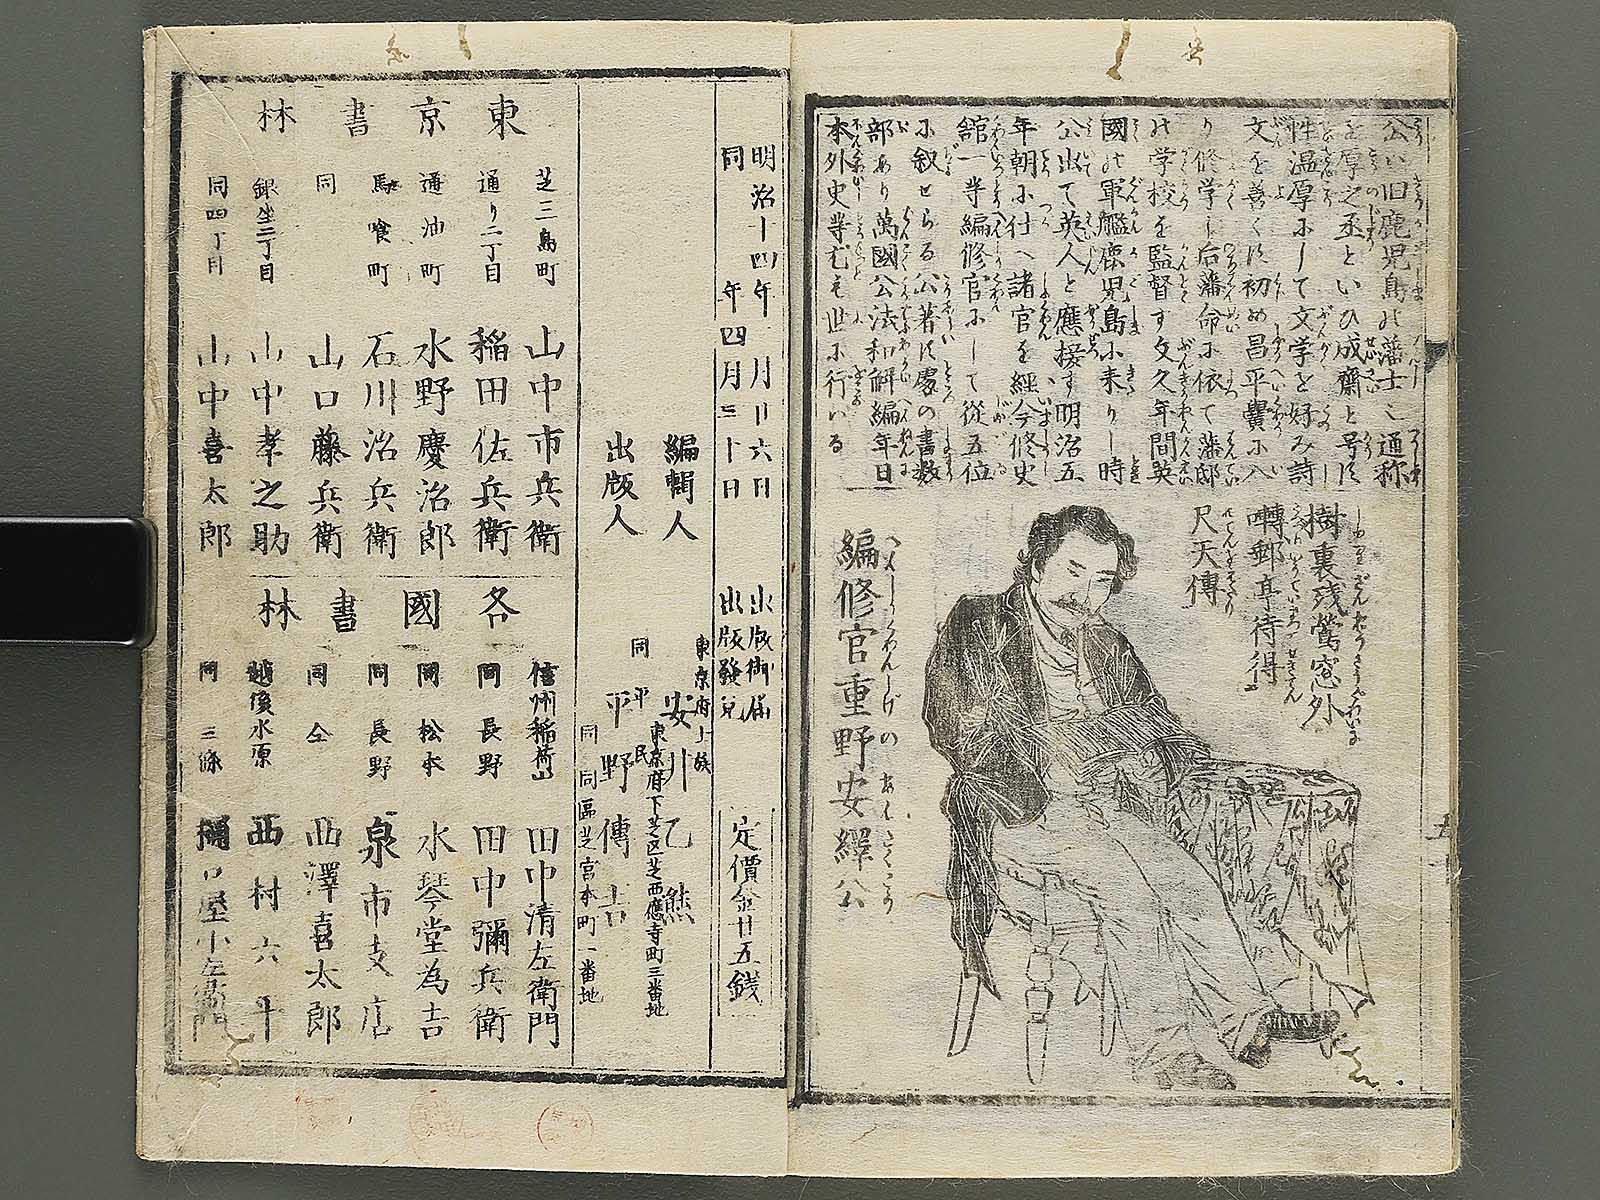 公ハ旧鹿児島の藩士也通称
を厚之丞といひ成齋と号す
性温厚にして文学を好み詩
文を善くす初め昌平黌に入
り修学し后藩命に依て藩邸
の学校を監督す文久年間英
國の軍艦鹿児島に来りし時
公出て英人と應接す明治五
年朝に仕へ諸官を經今修史
舘一等編修官にして從五位
に叙せらる公著す處の書数
部あり萬國公法和解編年日
本外史等尤も世に行はる
樹裏残鶯窓外
囀郵亭待得
尺天傳
編修官重野安繹公
へんしうくわんしげの あんえきこう
明治十四年 月廿六日 出版御届
同 年四月三十日 出版發兌
定價金廿五銭
東京府士族
編輯人 安川乙熊
東京府下芝区芝西應寺町三番地
同 平民
出版人 平野傳吉
同 同區芝宮本町一番地
東京書林
芝三島町 山中市兵衛
通り二丁目 稲田佐兵衛
通油町 水野慶治郎
馬喰町 石川治兵衛
同 山口藤兵衛
銀坐二丁目 山中孝之助
同四丁目 山中喜太郎
各國書林
信州稲荷山 田中清左衛門
同 長野 田中彌兵衛
同 松本 水琴堂為吉
同 長野 泉市支店
同 仝 西澤喜太郎
越後水原 西村六平
同 三條 口屋小左衛門
五